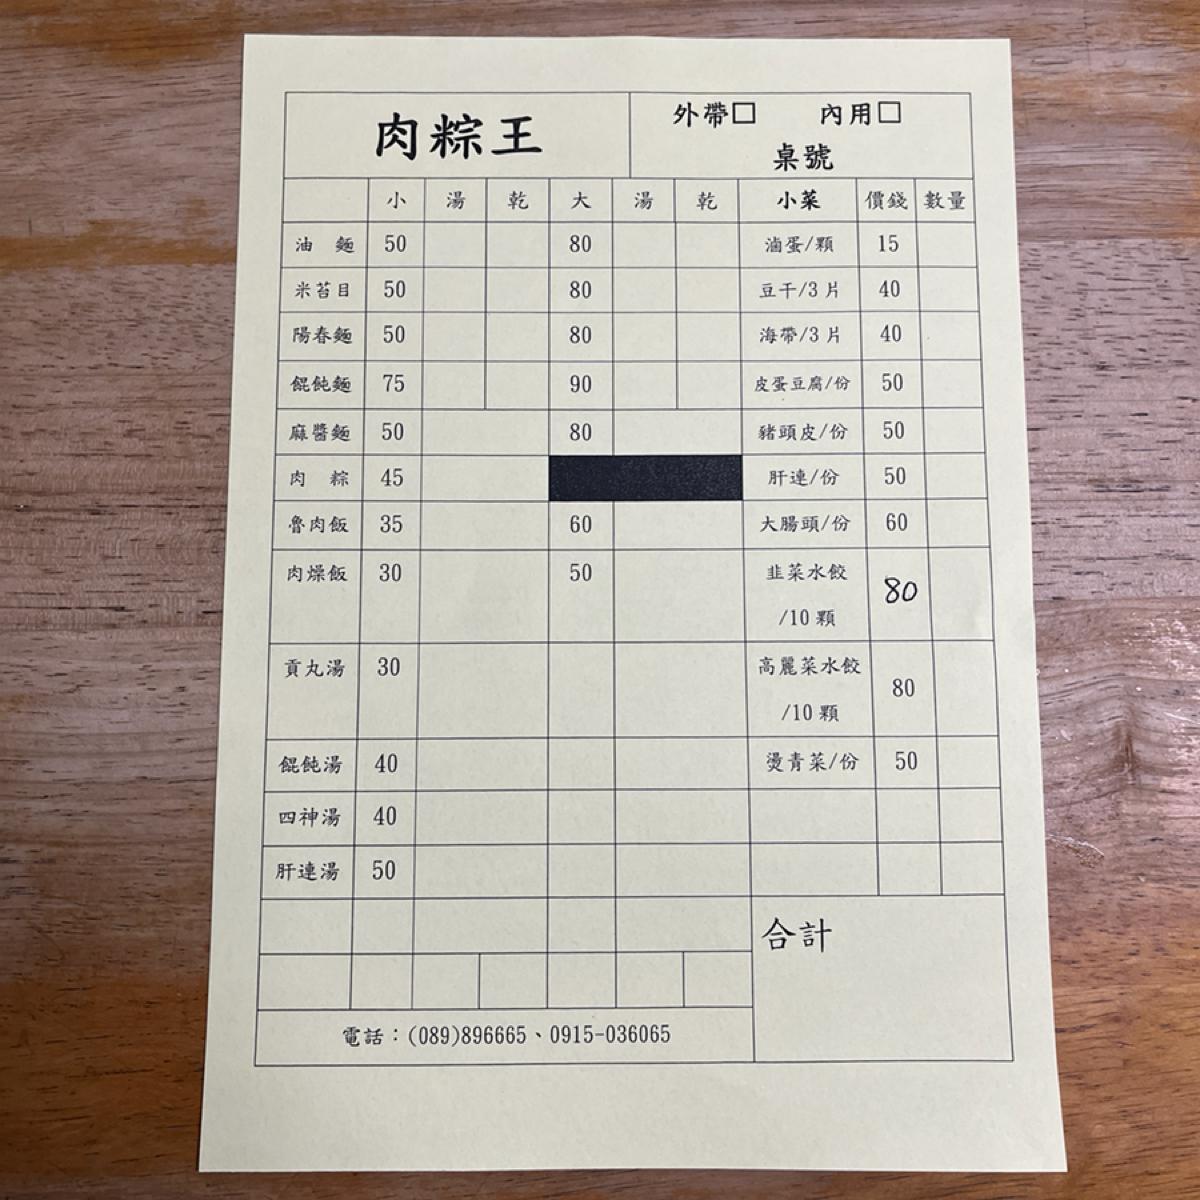 肉粽王
外帶□ 內用□
桌號
小 湯 乾 大 湯 乾 小菜 價錢 數量
油 麵 50 80 滷蛋/顆 15
米苔目 50 80 豆干/3片 40
陽春麵 50 80 海帶/3片 40
餛飩麵 75 90 皮蛋豆腐/份 50
麻醬麵 50 80 豬頭皮/份 50
肉 粽 45 肝連/份 50
魯肉飯 35 60 大腸頭/份 60
肉燥飯 30 50 韭菜水餃
/10顆 80
貢丸湯 30 高麗菜水餃
/10顆 80
餛飩湯 40 燙青菜/份 50
四神湯 40
肝連湯 50
合計
電話：(089)896665、0915-036065